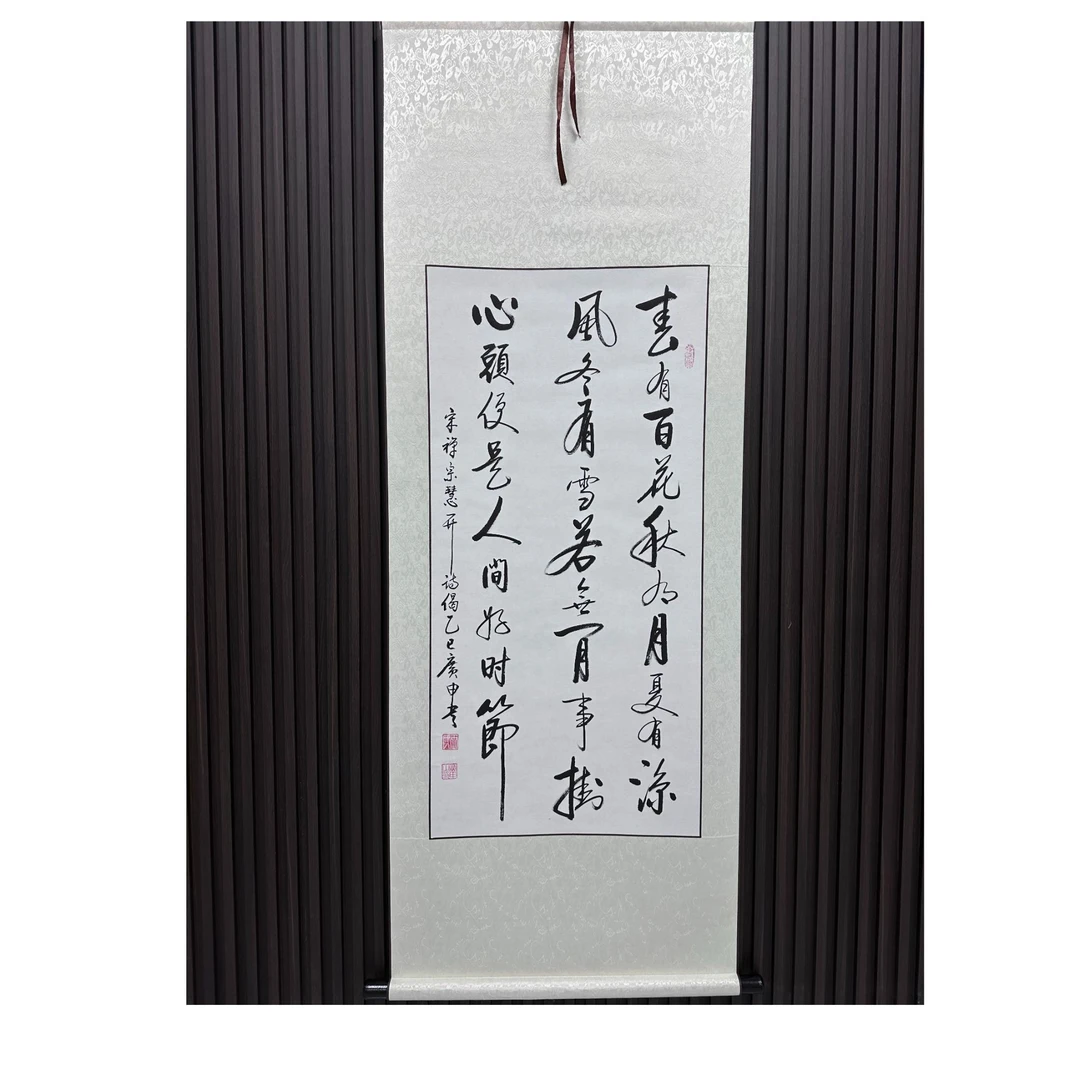 春有百花秋有月夏有涼
風冬有雪若無閒事掛
心頭便是人間好时節
宋禅宗慧开诗偈乙巳廣申书